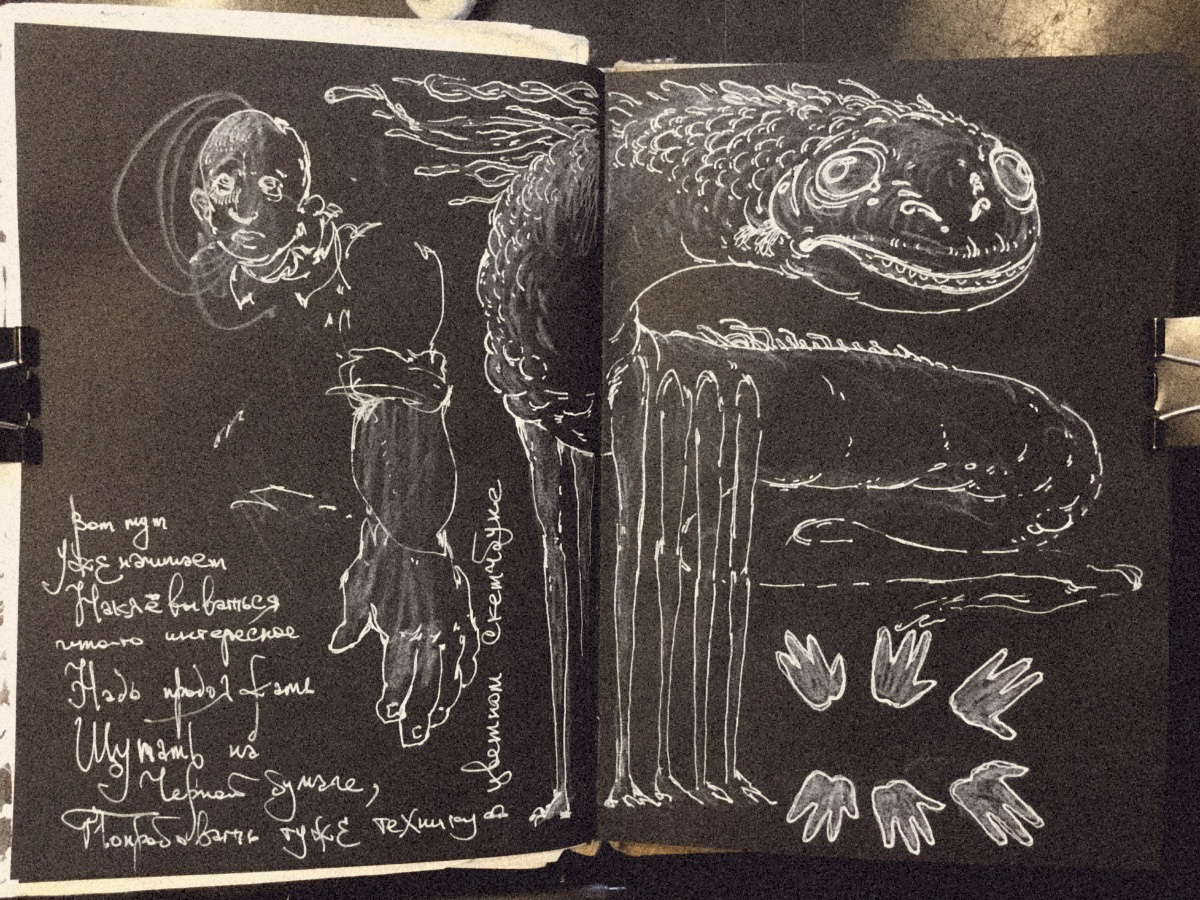 Вот тут
Уже начинает
Наклёвываться
что-то интересное
Надо продолжать
Шутать на
Чёрной бумаге,
Попробовать туже технику в
цветном скетчбуке